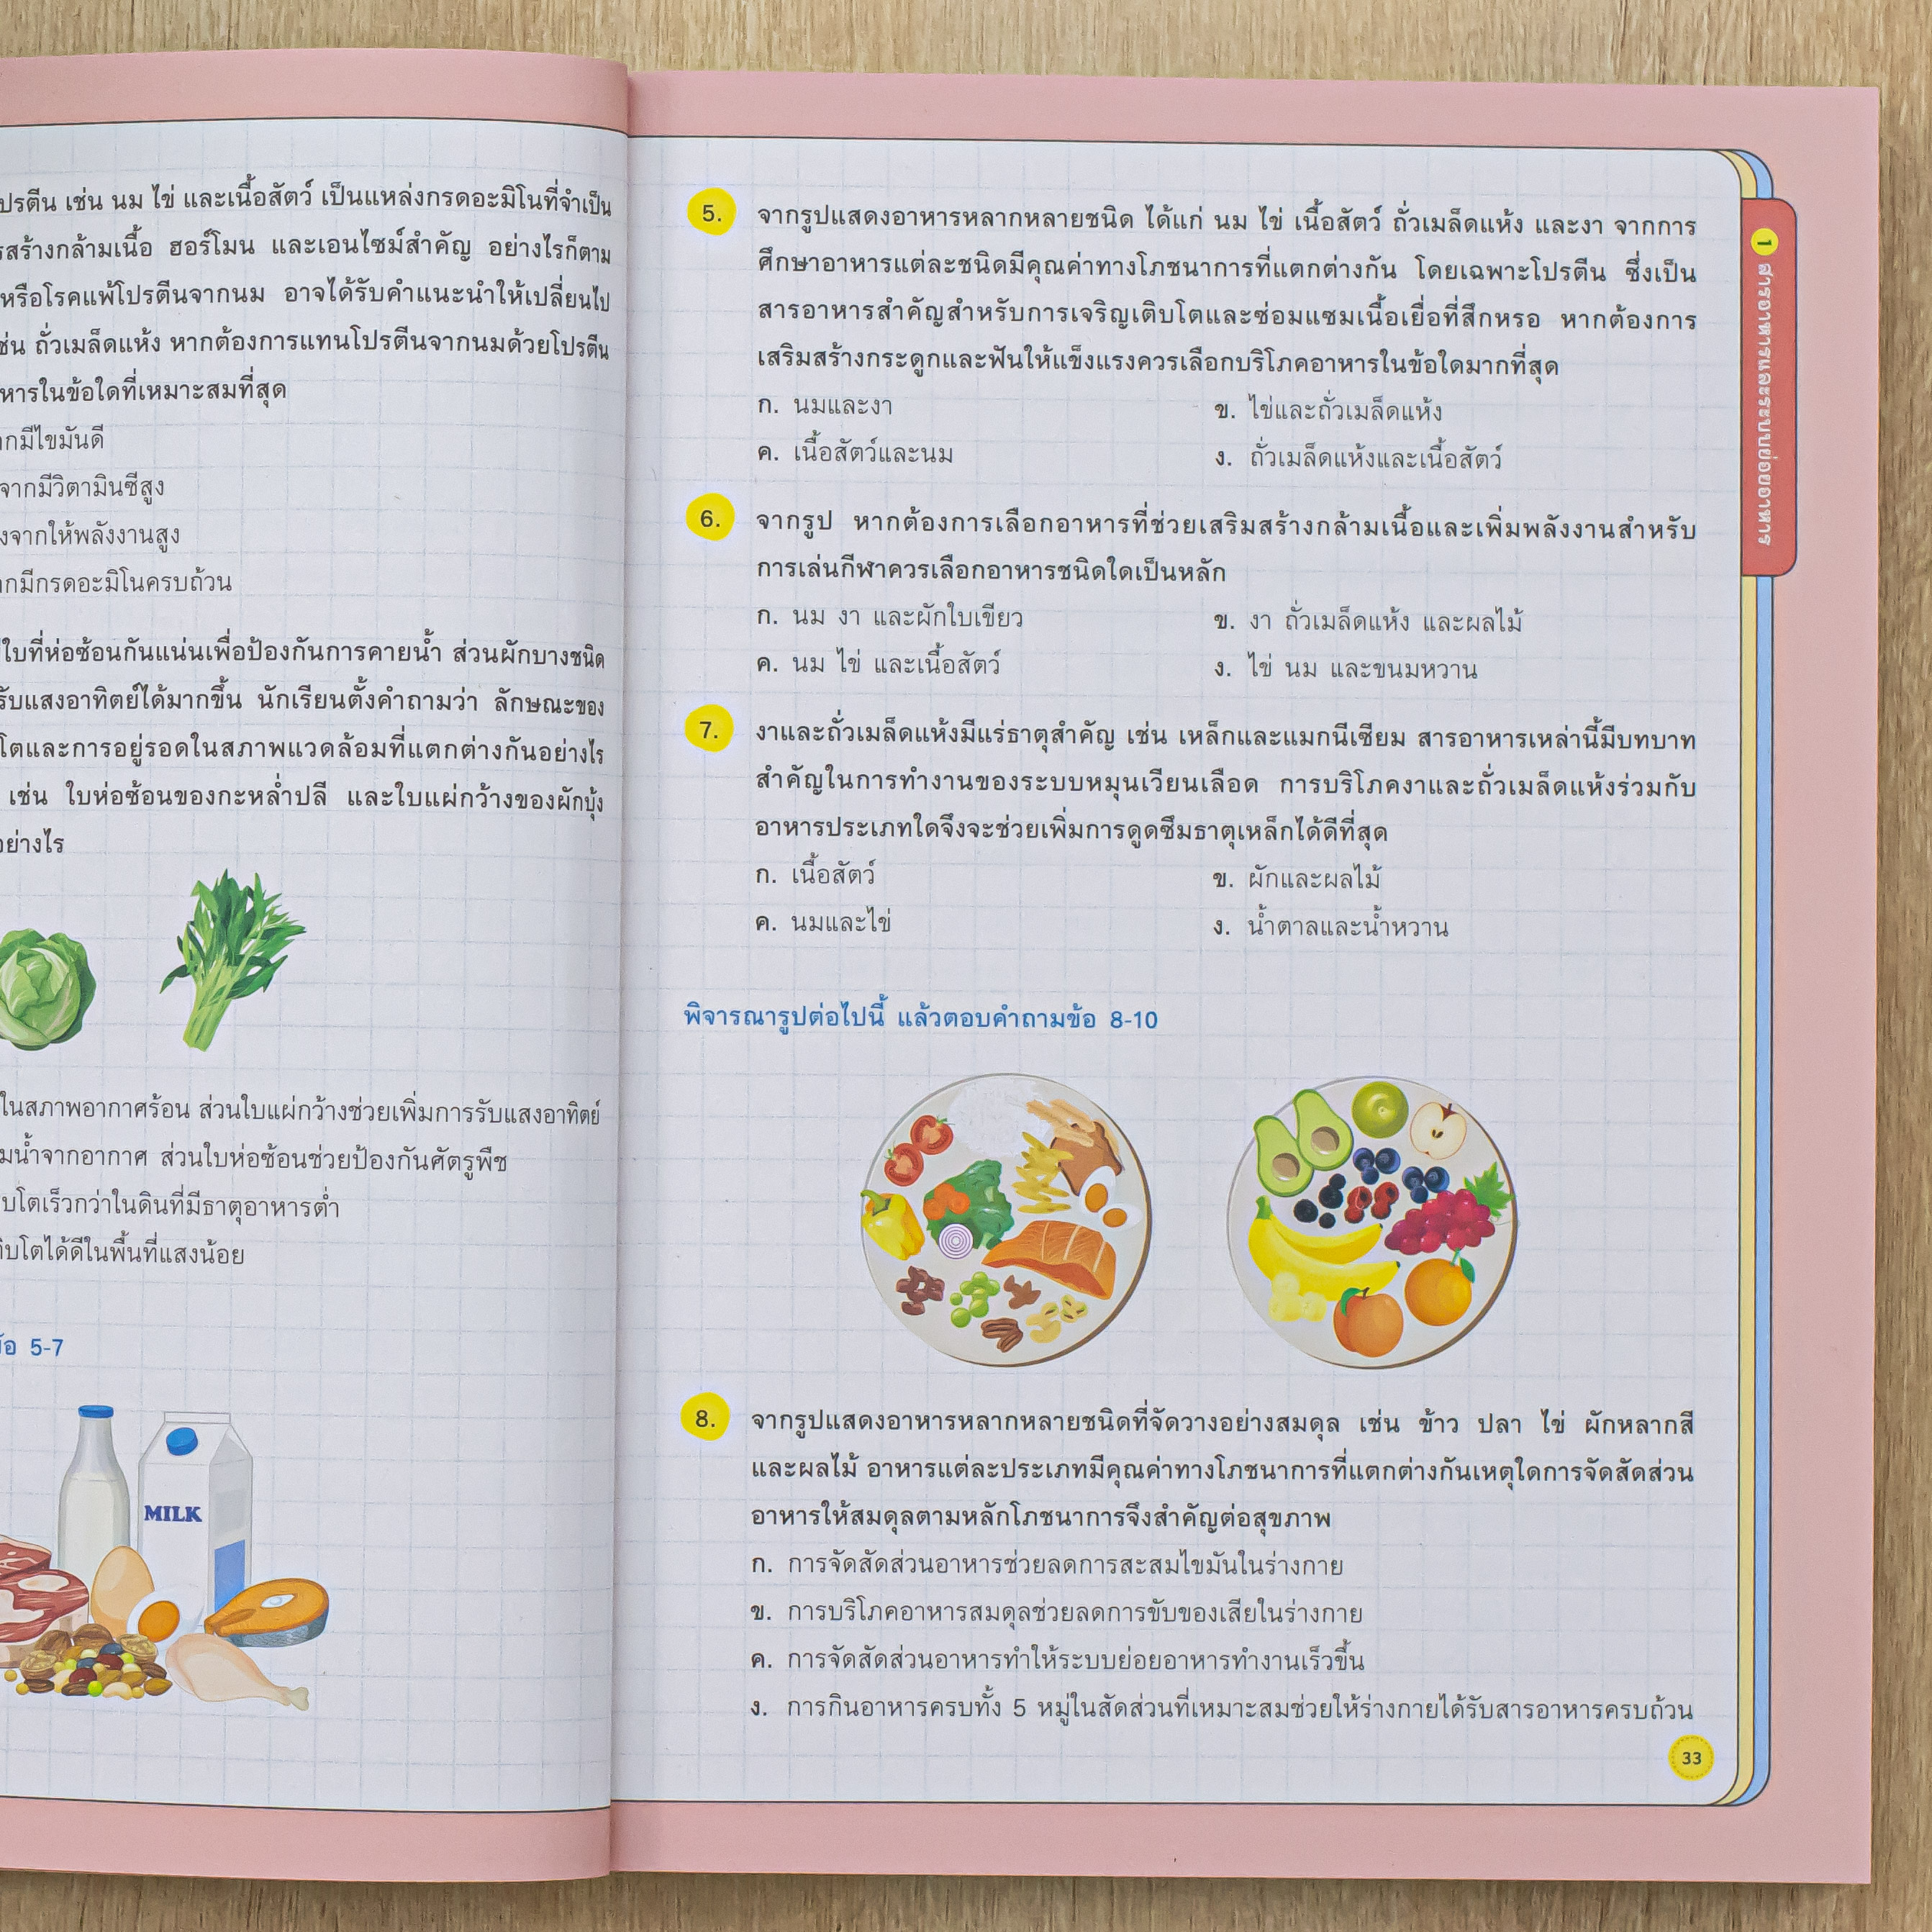 ปรตีน เช่น นม ไข่ และเนื้อสัตว์ เป็นแหล่งกรดอะมิโนที่จำเป็น
สร้างกล้ามเนื้อ ฮอร์โมน และเอนไซม์สำคัญ อย่างไรก็ตาม
หรือโรคแพ้โปรตีนจากนม อาจได้รับคำแนะนำให้เปลี่ยนไป
ช่น ถั่วเมล็ดแห้ง หากต้องการแทนโปรตีนจากนมด้วยโปรตีน
หารในข้อใดที่เหมาะสมที่สุด
กมีไขมันดี
จากมีวิตามินซีสูง
งจากให้พลังงานสูง
กมีกรดอะมิโนครบถ้วน
ใบที่ห่อซ้อนกันแน่นเพื่อป้องกันการคายน้ำ ส่วนผักบางชนิด
รับแสงอาทิตย์ได้มากขึ้น นักเรียนตั้งคำถามว่า ลักษณะของ
โตและการอยู่รอดในสภาพแวดล้อมที่แตกต่างกันอย่างไร
เช่น ใบห่อซ้อนของกะหล่ำปลี และใบแผ่กว้างของผักบุ้ง
อย่างไร
ในสภาพอากาศร้อน ส่วนใบแผ่กว้างช่วยเพิ่มการรับแสงอาทิตย์
มน้ำจากอากาศ ส่วนใบห่อซ้อนช่วยป้องกันศัตรูพืช
บโตเร็วกว่าในดินที่มีธาตุอาหารต่ำ
ติบโตได้ดีในพื้นที่แสงน้อย
ข้อ 5-7
MILK
5. จากรูปแสดงอาหารหลากหลายชนิด ได้แก่ นม ไข่ เนื้อสัตว์ ถั่วเมล็ดแห้ง และงา จากการ
ศึกษาอาหารแต่ละชนิดมีคุณค่าทางโภชนาการที่แตกต่างกัน โดยเฉพาะโปรตีน ซึ่งเป็น
สารอาหารสำคัญสำหรับการเจริญเติบโตและซ่อมแซมเนื้อเยื่อที่สึกหรอ หากต้องการ
เสริมสร้างกระดูกและฟันให้แข็งแรงควรเลือกบริโภคอาหารในข้อใดมากที่สุด
ก. นมและงา ข. ไข่และถั่วเมล็ดแห้ง
ค. เนื้อสัตว์และนม ง. ถั่วเมล็ดแห้งและเนื้อสัตว์
6. จากรูป หากต้องการเลือกอาหารที่ช่วยเสริมสร้างกล้ามเนื้อและเพิ่มพลังงานสำหรับ
การเล่นกีฬาควรเลือกอาหารชนิดใดเป็นหลัก
ก. นม งา และผักใบเขียว ข. งา ถั่วเมล็ดแห้ง และผลไม้
ค. นม ไข่ และเนื้อสัตว์ ง. ไข่ นม และขนมหวาน
7. งาและถั่วเมล็ดแห้งมีแร่ธาตุสำคัญ เช่น เหล็กและแมกนีเซียม สารอาหารเหล่านี้มีบทบาท
สำคัญในการทำงานของระบบหมุนเวียนเลือด การบริโภคงาและถั่วเมล็ดแห้งร่วมกับ
อาหารประเภทใดจึงจะช่วยเพิ่มการดูดซึมธาตุเหล็กได้ดีที่สุด
ก. เนื้อสัตว์ ข. ผักและผลไม้
ค. นมและไข่ ง. น้ำตาลและน้ำหวาน
พิจารณารูปต่อไปนี้ แล้วตอบคำถามข้อ 8-10
8. จากรูปแสดงอาหารหลากหลายชนิดที่จัดวางอย่างสมดุล เช่น ข้าว ปลา ไข่ ผักหลากสี
และผลไม้ อาหารแต่ละประเภทมีคุณค่าทางโภชนาการที่แตกต่างกันเหตุใดการจัดสัดส่วน
อาหารให้สมดุลตามหลักโภชนาการจึงสำคัญต่อสุขภาพ
ก. การจัดสัดส่วนอาหารช่วยลดการสะสมไขมันในร่างกาย
ข. การบริโภคอาหารสมดุลช่วยลดการขับของเสียในร่างกาย
ค. การจัดสัดส่วนอาหารทำให้ระบบย่อยอาหารทำงานเร็วขึ้น
ง. การกินอาหารครบทั้ง 5 หมู่ในสัดส่วนที่เหมาะสมช่วยให้ร่างกายได้รับสารอาหารครบถ้วน
33
1 สารอาหารและระบบย่อยอาหาร